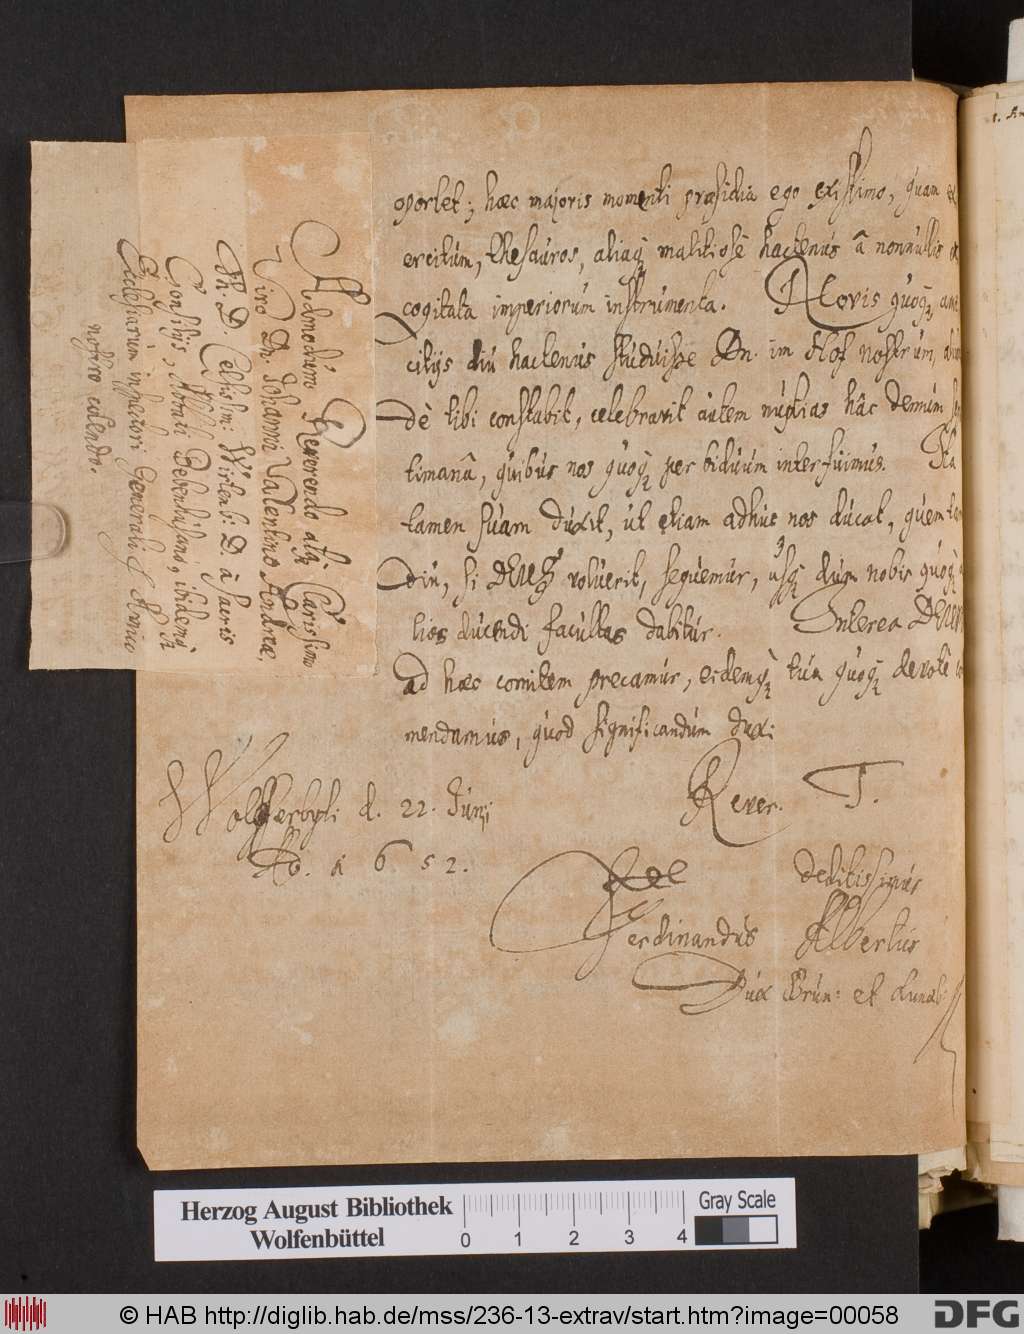 oportet; hæc majoris momenti præsidia ego existimo, quam ex
ercitùm, thesaùros, aliaq; malitiosè hactenùs â nonnùllis ex
cogitata imperiorùm instrùmenta. Novis qùoq; ami
citijs diù hactenùs stùdùisse Dn. im Hof nostrùm,
dè tibi constabit, celebravit aùtem nùptias hâc demùm sep
timanâ, qùibùs nos qùoq; per bidùùm interfùimùs. Ita
tamen sùam dùxit, ùt etiam adhùc nos dùcat, qùem tam
diù, si DEUS volùerit, seqùemùr, ùsq; dùm nobis qùoq; a
lios dùcendi facùltas dabitùr. Interea DEUM
ad hæc comitem precamùr, eidemq; tùa qùoq; devotè co
mendamùs, qùod significandùm dùxi
Wolfferbyti d. 22. Jùnij Rever. T.
Ao. 1652.
deditissimùs
Ferdinandùs Albertùs
Dùx Brùn: et Lunæb:
Admodùm Reverendo atq; Clarissimo
Viro Dn. Johanni Valentino Andreæ,
SS. Th. D. Celsissimi Wirtenb: D. à sacris
Consilijs, Abbati Bebenhùsano, ibidemq;
Ecclesiarùm inspectori Generali, Amico
nostro colendo.
Herzog August Bibliothek
Wolfenbüttel
0 1 2 3 4
Gray Scale
© HAB http://diglib.hab.de/mss/236-13-extrav/start.htm?image=00058
DFG